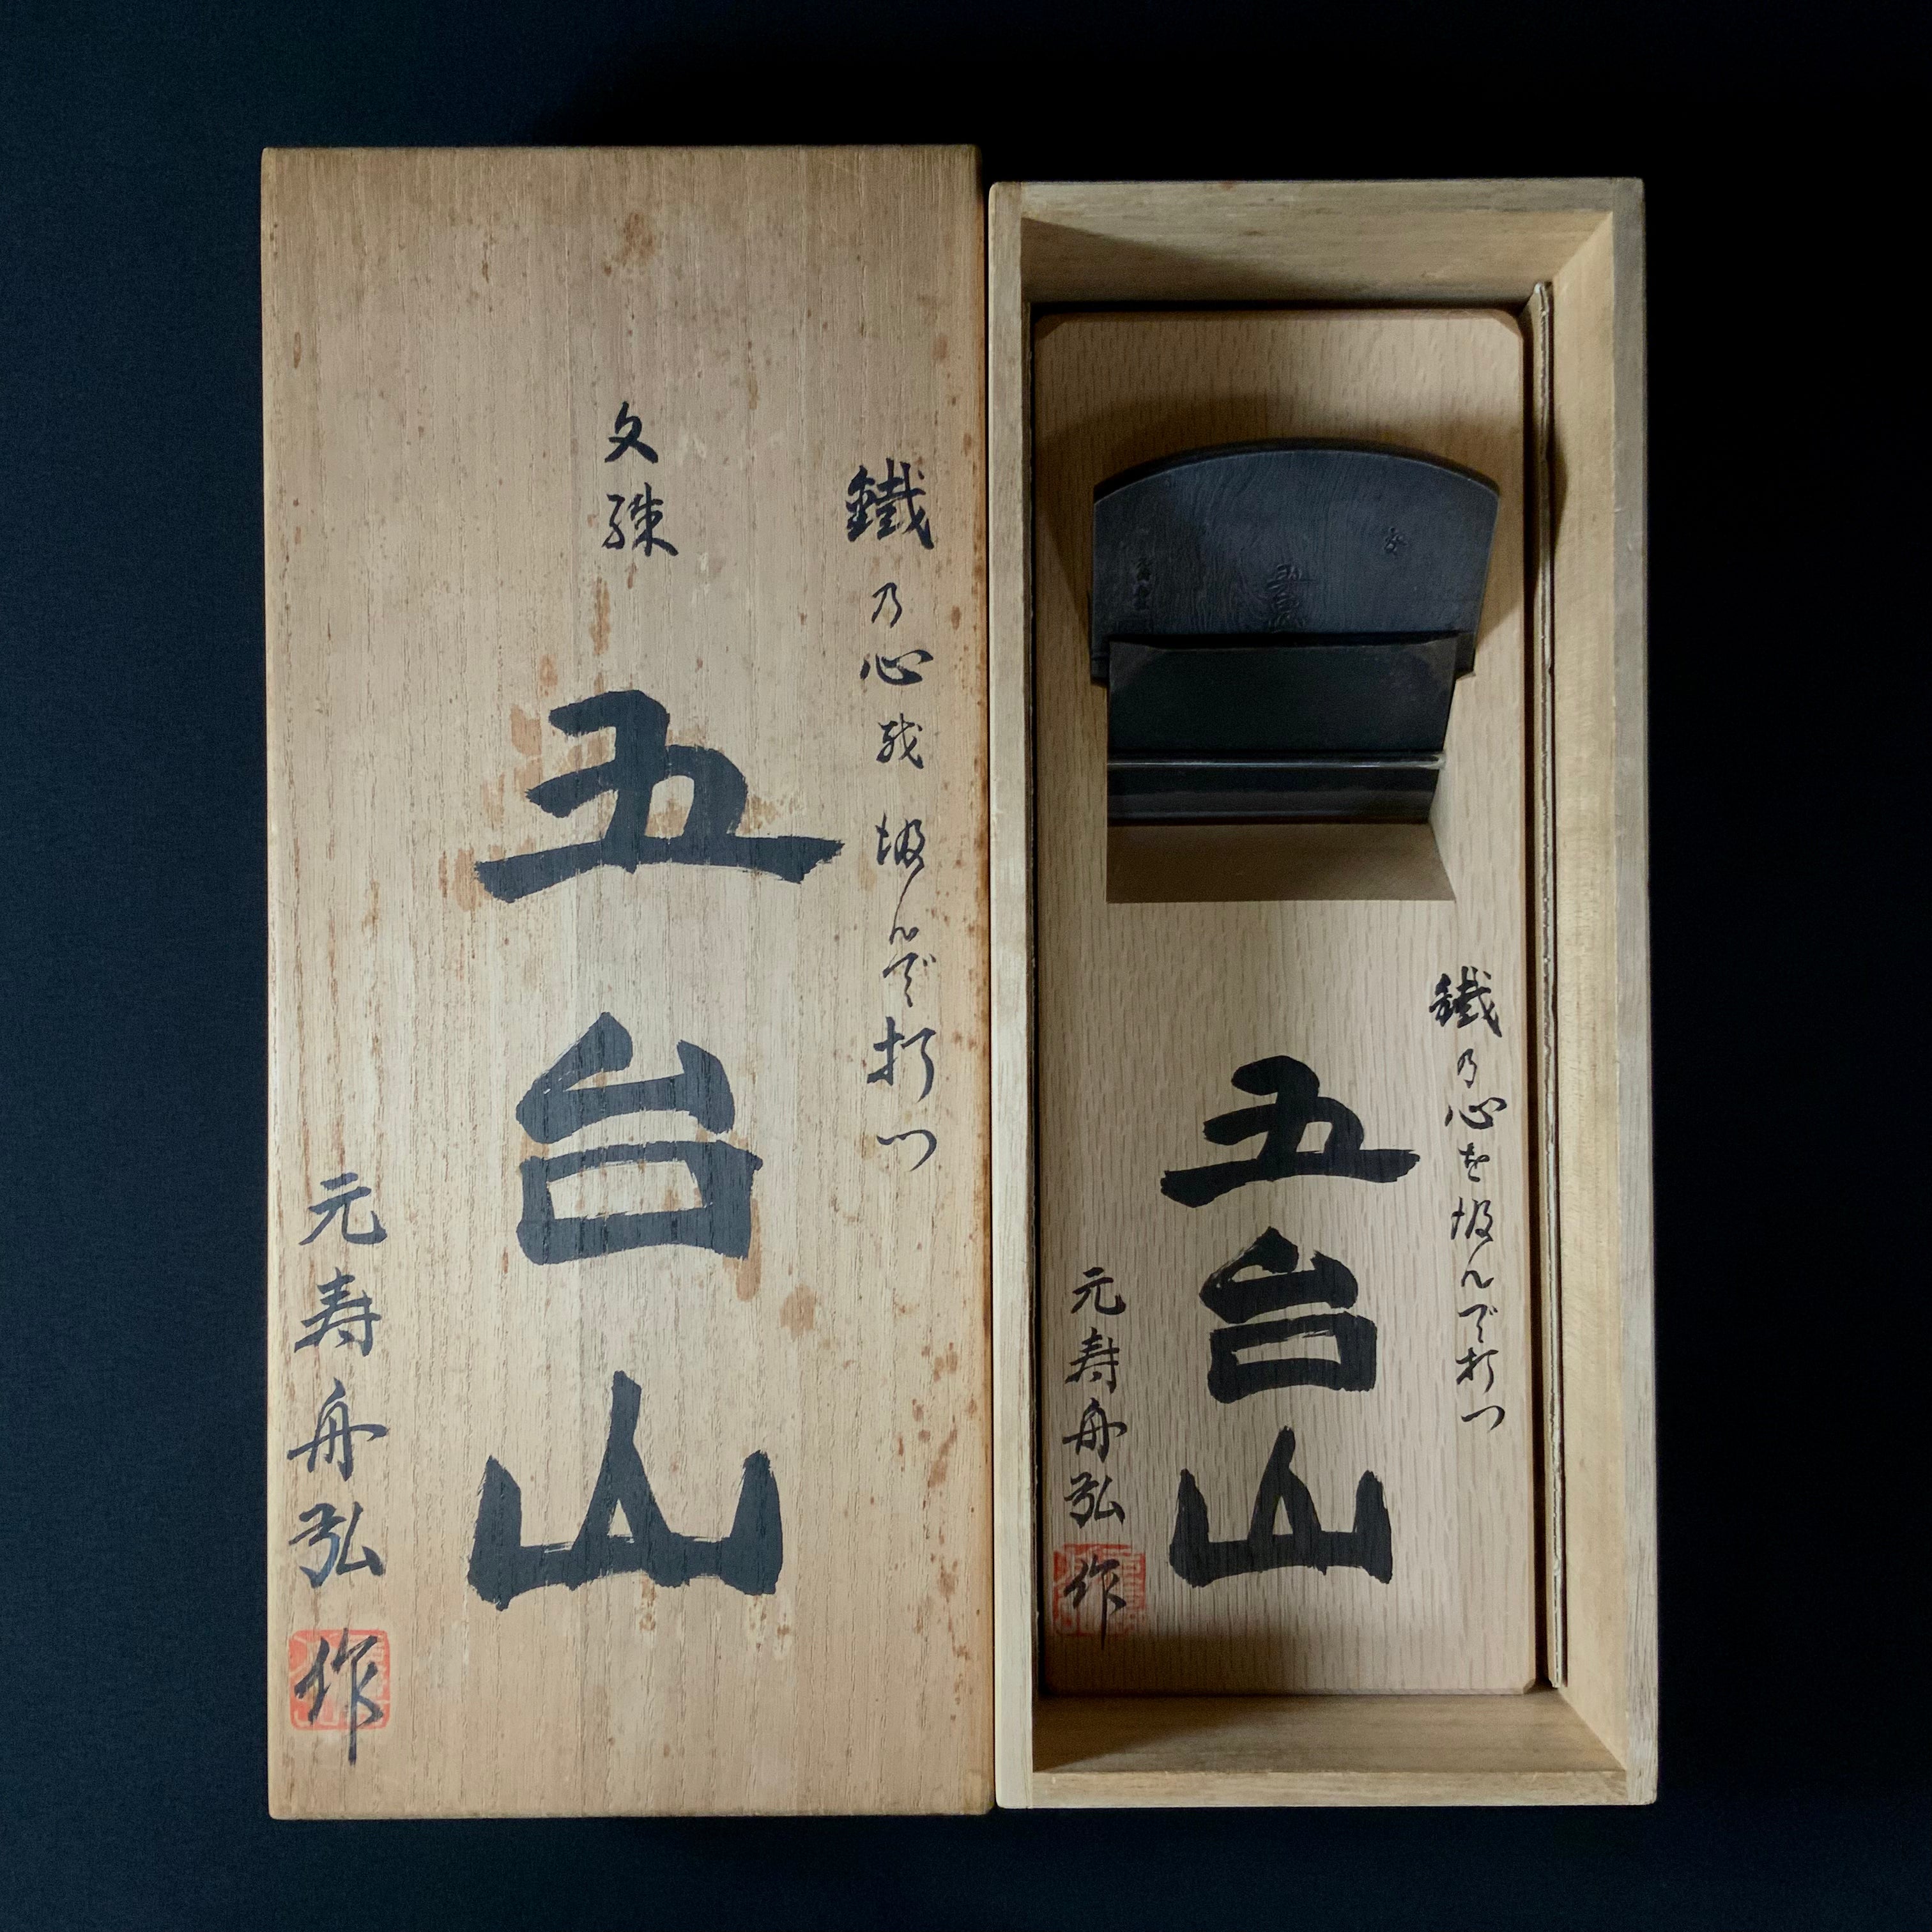 鐵乃心汲んで打つ
文殊
五台山
元寿舟弘
作
鐵乃心を汲んで打つ
五台山
元寿舟弘
作